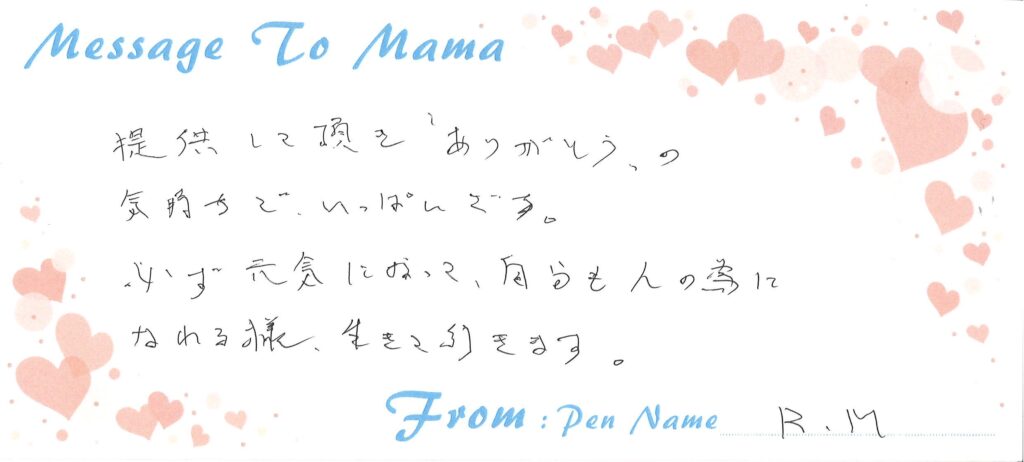 Message To Mama
提供して頂き「ありがとう」の
気持ちで、いっぱいです。
必ず元気になって、自分も人の為に
なれる様、生きて行きます。
From : Pen Name R.M